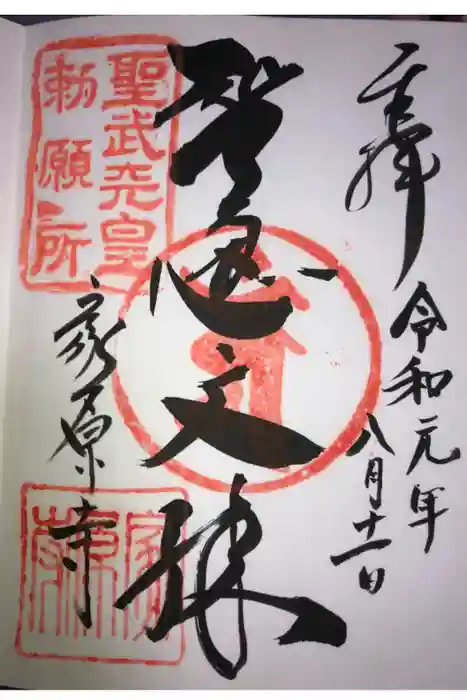 奉拝
令和元年
八月十一日
智恵文殊
聖武天皇
勅願所
家原寺
家原寺